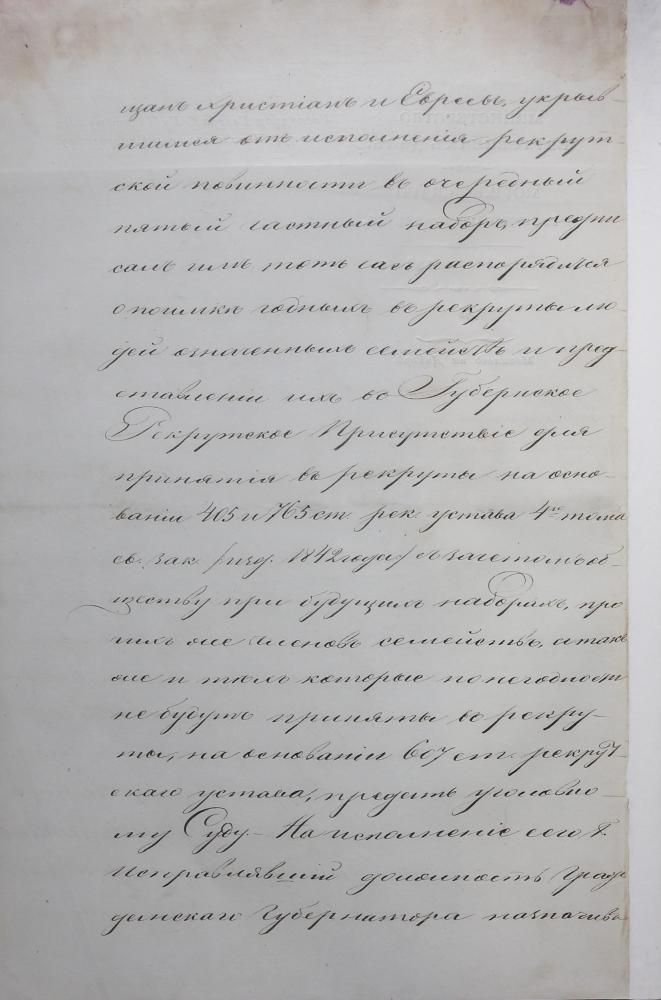 щанъ Христіанъ и Евреевъ, укрыв-
шимся отъ исполненія рекрут-
ской повинности въ очередный
пятый частный наборъ, предпи
салъ имъ тотъ часъ распорядиться
о поимкѣ годныхъ въ рекруты лю-
дей означенныхъ семействъ и пред-
ставленіи ихъ въ Губернское
Рекрутское Присутствіе для
принятія въ рекруты на осно-
ваніи 405 и 765 ст. рек. устава 4го тома
св. Зак. /изд. 1842 года/ съ зачетомъ об-
ществу при будущихъ наборахъ, про
чихъ же членовъ семействъ, а такъ
же и тѣхъ которые по негодности
не будутъ приняты въ рекру-
ты, на основаніи 607 ст. рекрут-
скаго устава, предать уголовно-
му Суду. - На исполненіе сего Г.
Исправлявшій должность Граж
данскаго Губернатора назначив